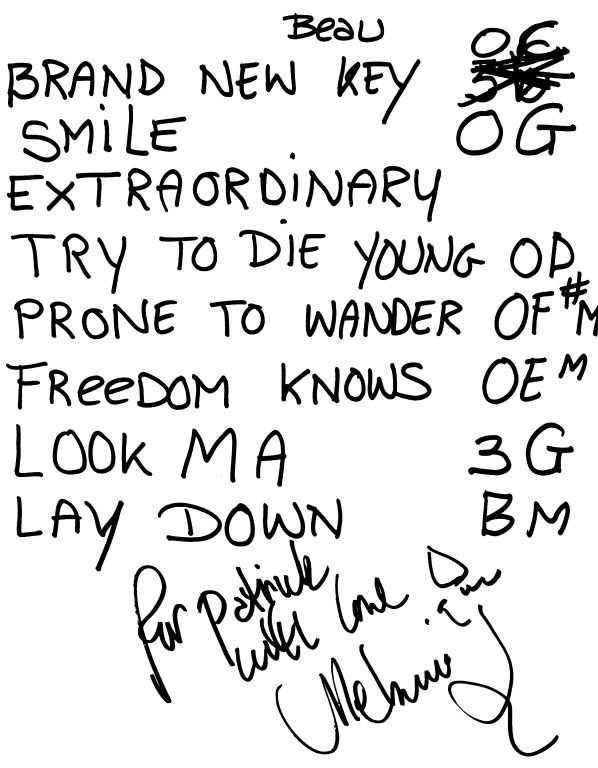 Beau
BRAND NEW KEY OE
SMiLE OG
EXTRAORDiNARY
TRY TO DiE YOUNG OD
PRONE TO WANDER OF#M
FReeDOM KNOWS OEM
LOOK MA 3G
LAY DOWN BM
for Patrick
with love
Melanie